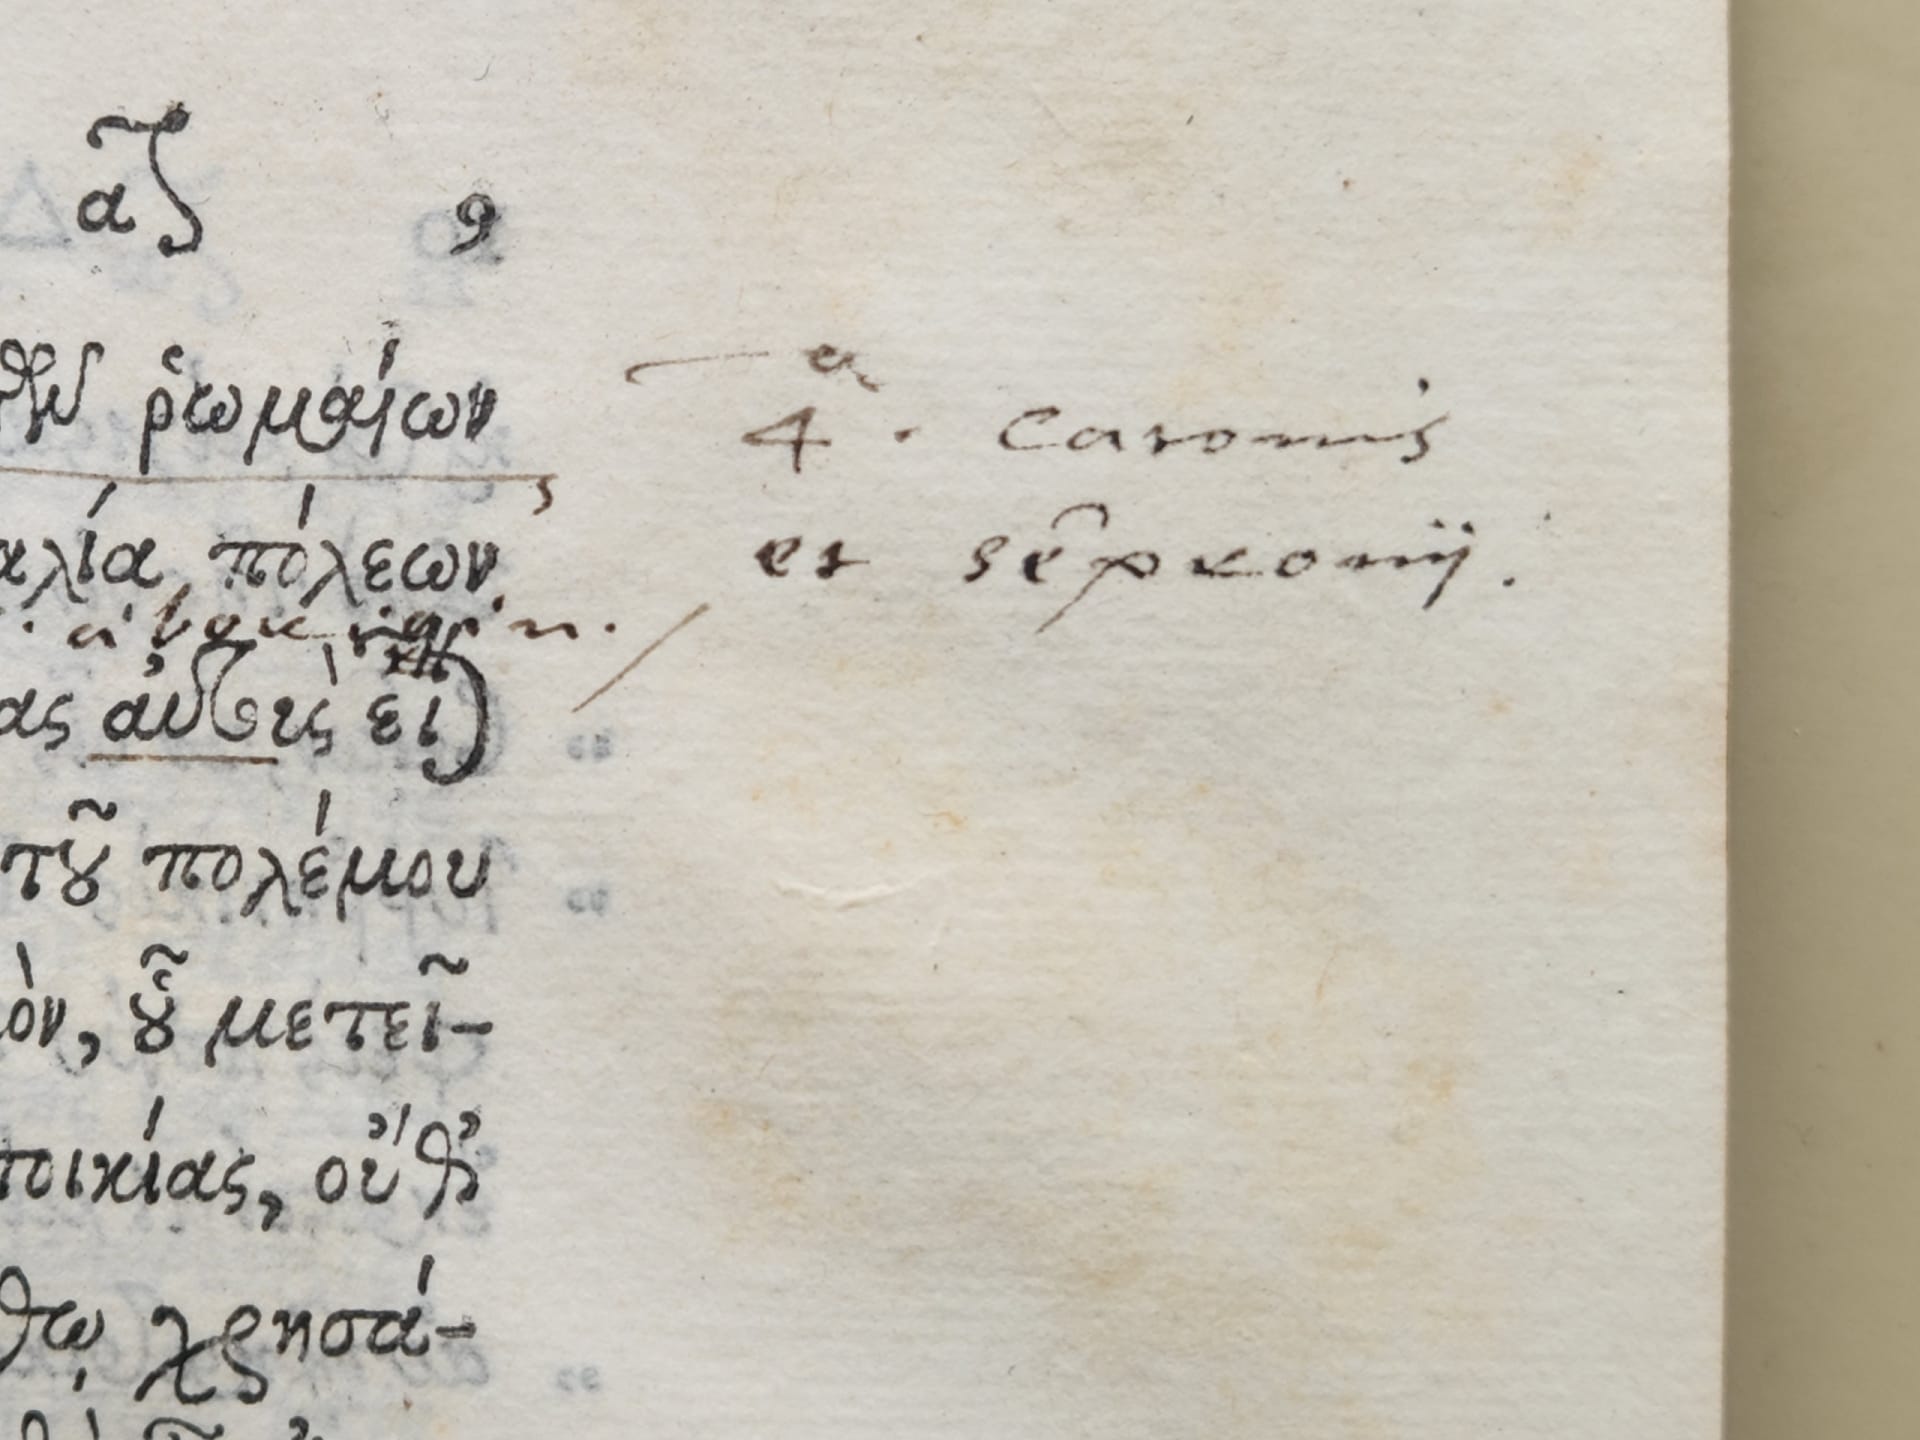 ᾶζ 9
τῶν ῥωμαίων
αλία πόλεων
ας αὐτοῖς εἰ
τοῦ πολέμου
όν, οὗ μετεῖ-
ποικίας, οὔθ
θω χρησά-
4ᵃ. catonis
et sẽpronij.